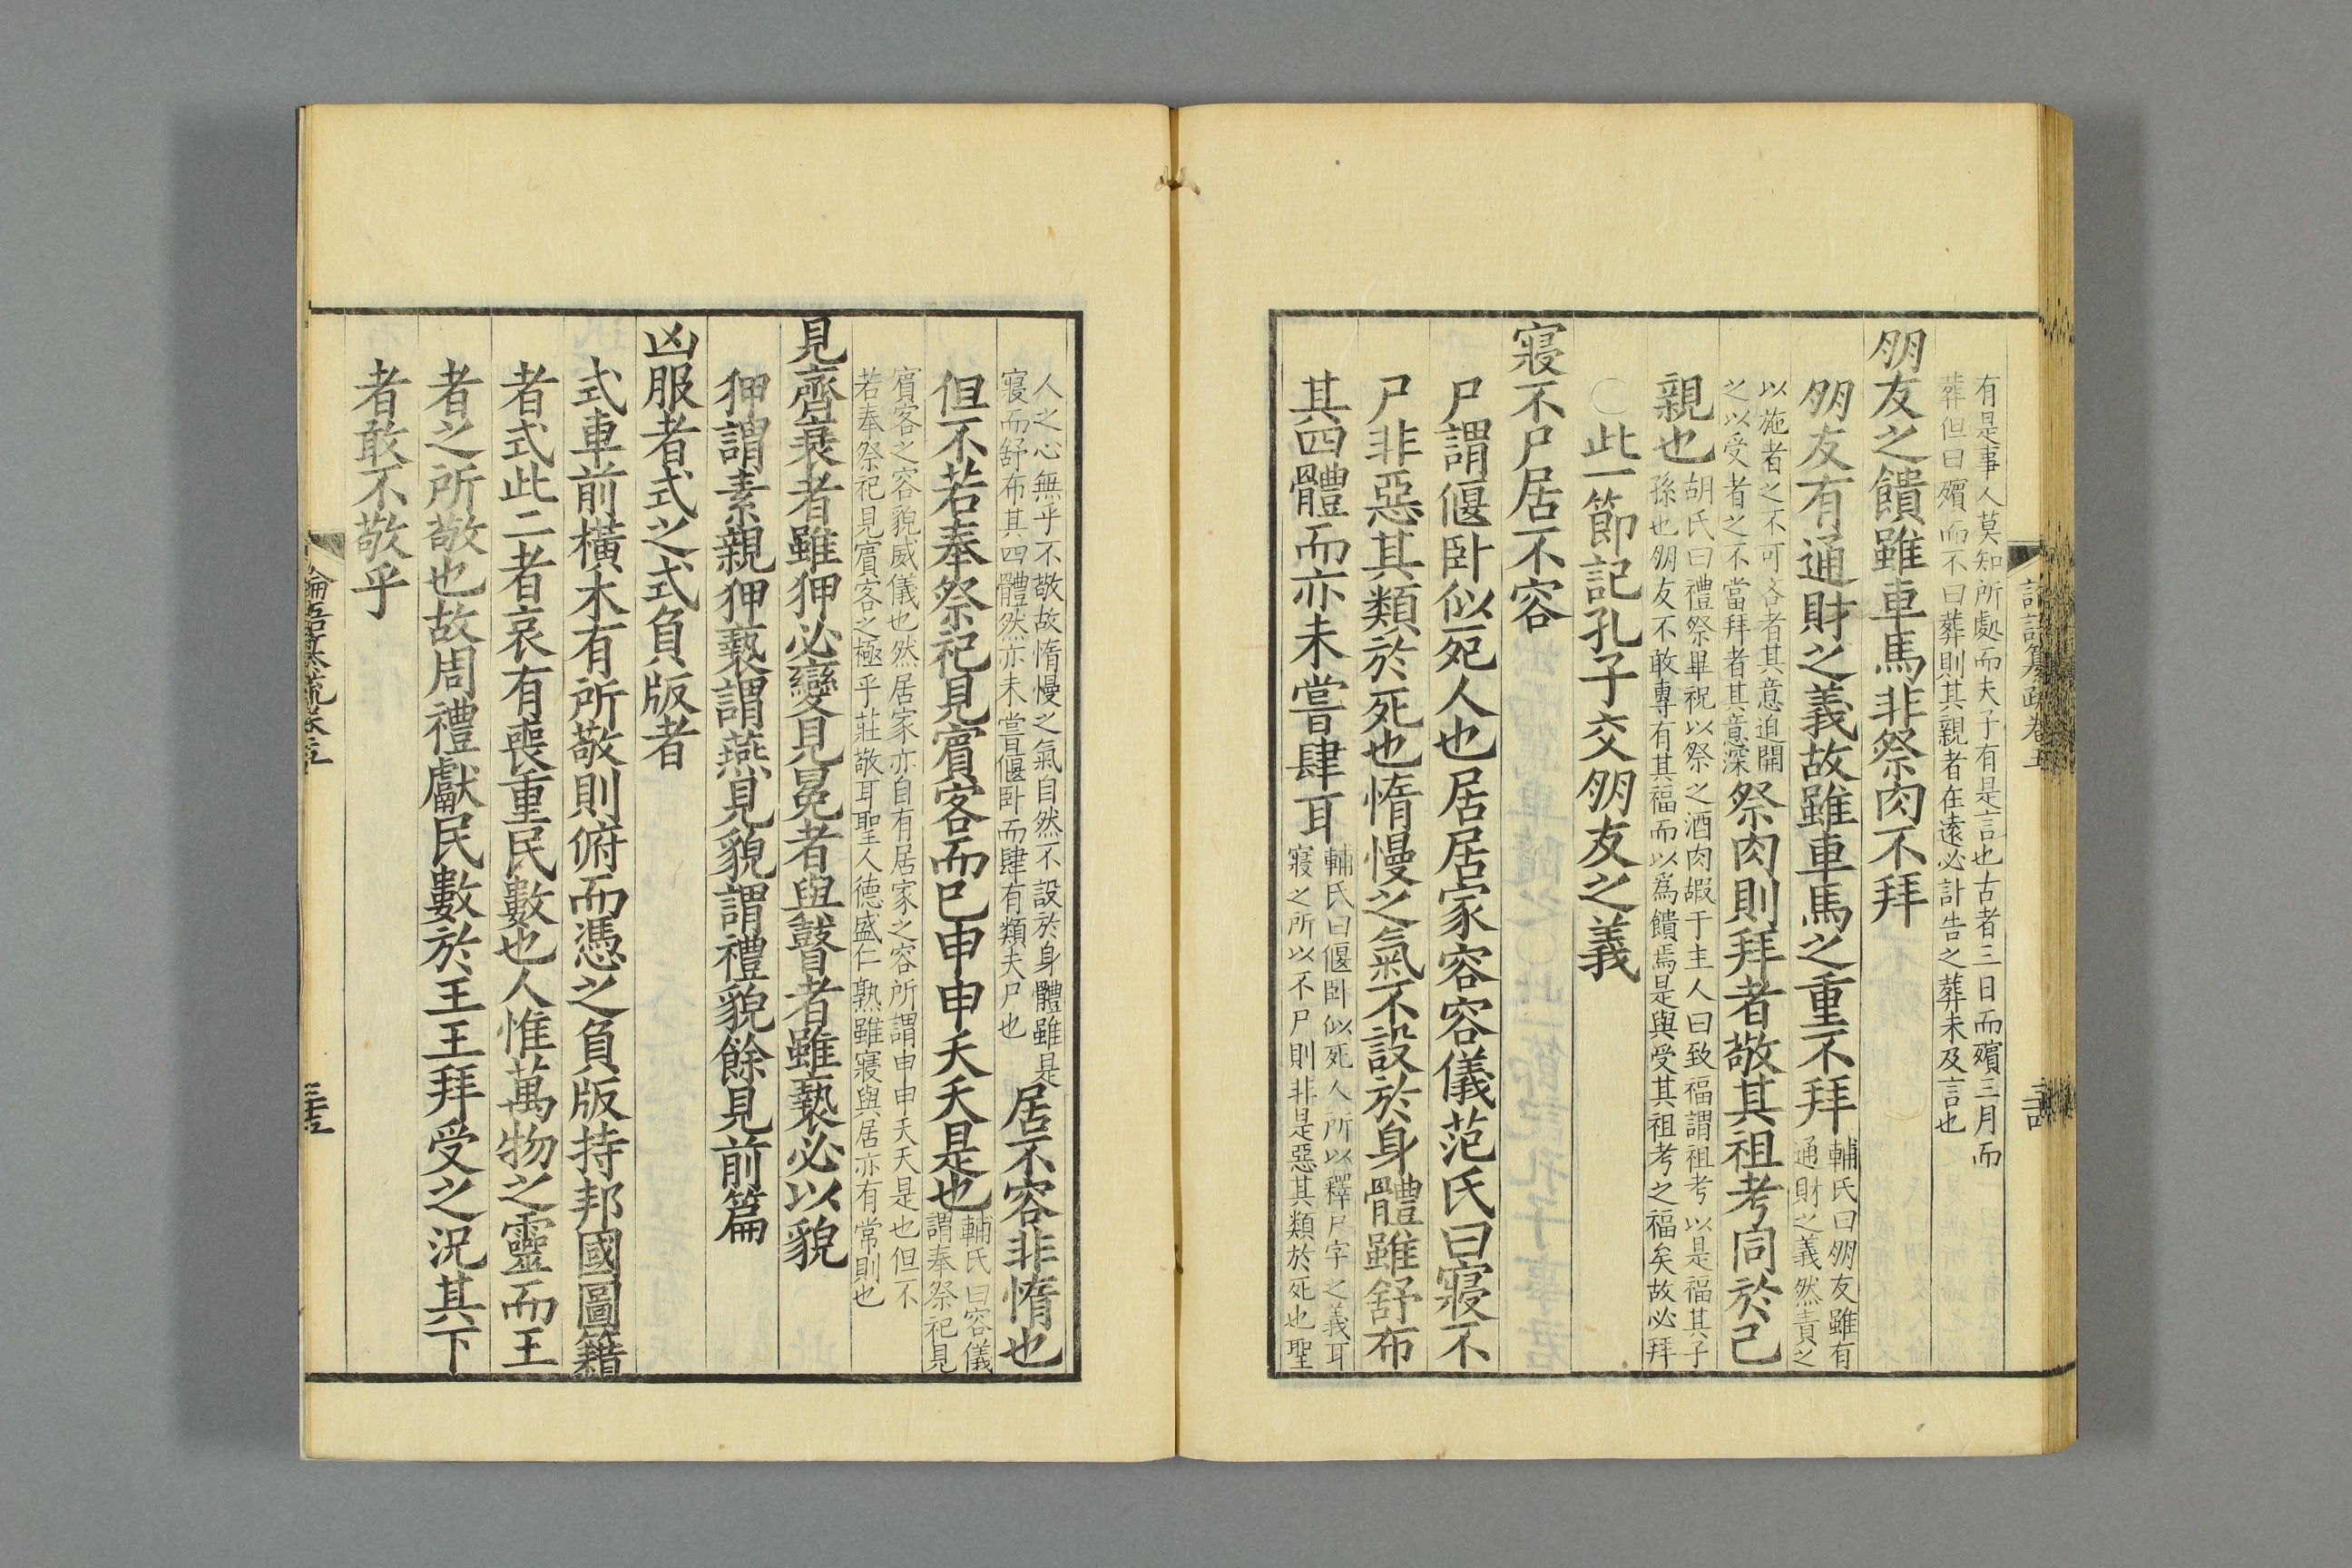 有是事人莫知所處而夫子有是言也古者三日而殯三月而
葬但曰殯而不曰葬則其親者在遠必計告之葬未及言也
朋友之饋雖車馬非祭肉不拜
朋友有通財之義故雖車馬之重不拜輔氏曰朋友雖有
通財之義然責之
以施者之不可吝者其意迫開
之以受者之不當拜者其意深祭肉則拜者敬其祖考同於己
親也胡氏曰禮祭畢祝以祭之酒肉嘏于主人曰致福謂祖考以是福其子
孫也朋友不敢專有其福而以爲饋焉是與受其祖考之福矣故必拜
〇此一節記孔子交朋友之義
寢不尸居不容
尸謂偃臥似死人也居居家容容儀范氏曰寢不
尸非惡其類於死也惰慢之氣不設於身體雖舒布
其四體而亦未嘗肆耳輔氏曰偃臥似死人所以釋尸字之義耳
寢之所以不尸則非是惡其類於死也聖
人之心無乎不敬故惰慢之氣自然不設於身體雖是
寢而舒布其四體然亦未嘗偃臥而肆有類夫尸也居不容非惰也
但不若奉祭祀見賓客而已申申夭夭是也輔氏曰容儀
謂奉祭祀見
賓客之容貌威儀也然居家亦自有居家之容所謂申申夭夭是也但不
若奉祭祀見賓客之極乎莊敬耳聖人德盛仁熟雖寢與居亦有常則也
見齊衰者雖狎必變見冕者與瞽者雖褻必以貌
狎謂素親狎褻謂燕見貌謂禮貌餘見前篇
凶服者式之式負版者
式車前橫木有所敬則俯而憑之負版持邦國圖籍
者式此二者哀有喪重民數也人惟萬物之靈而王
者之所敬也故周禮獻民數於王王拜受之況其下
者敢不敬乎
論語纂疏卷五
三十五